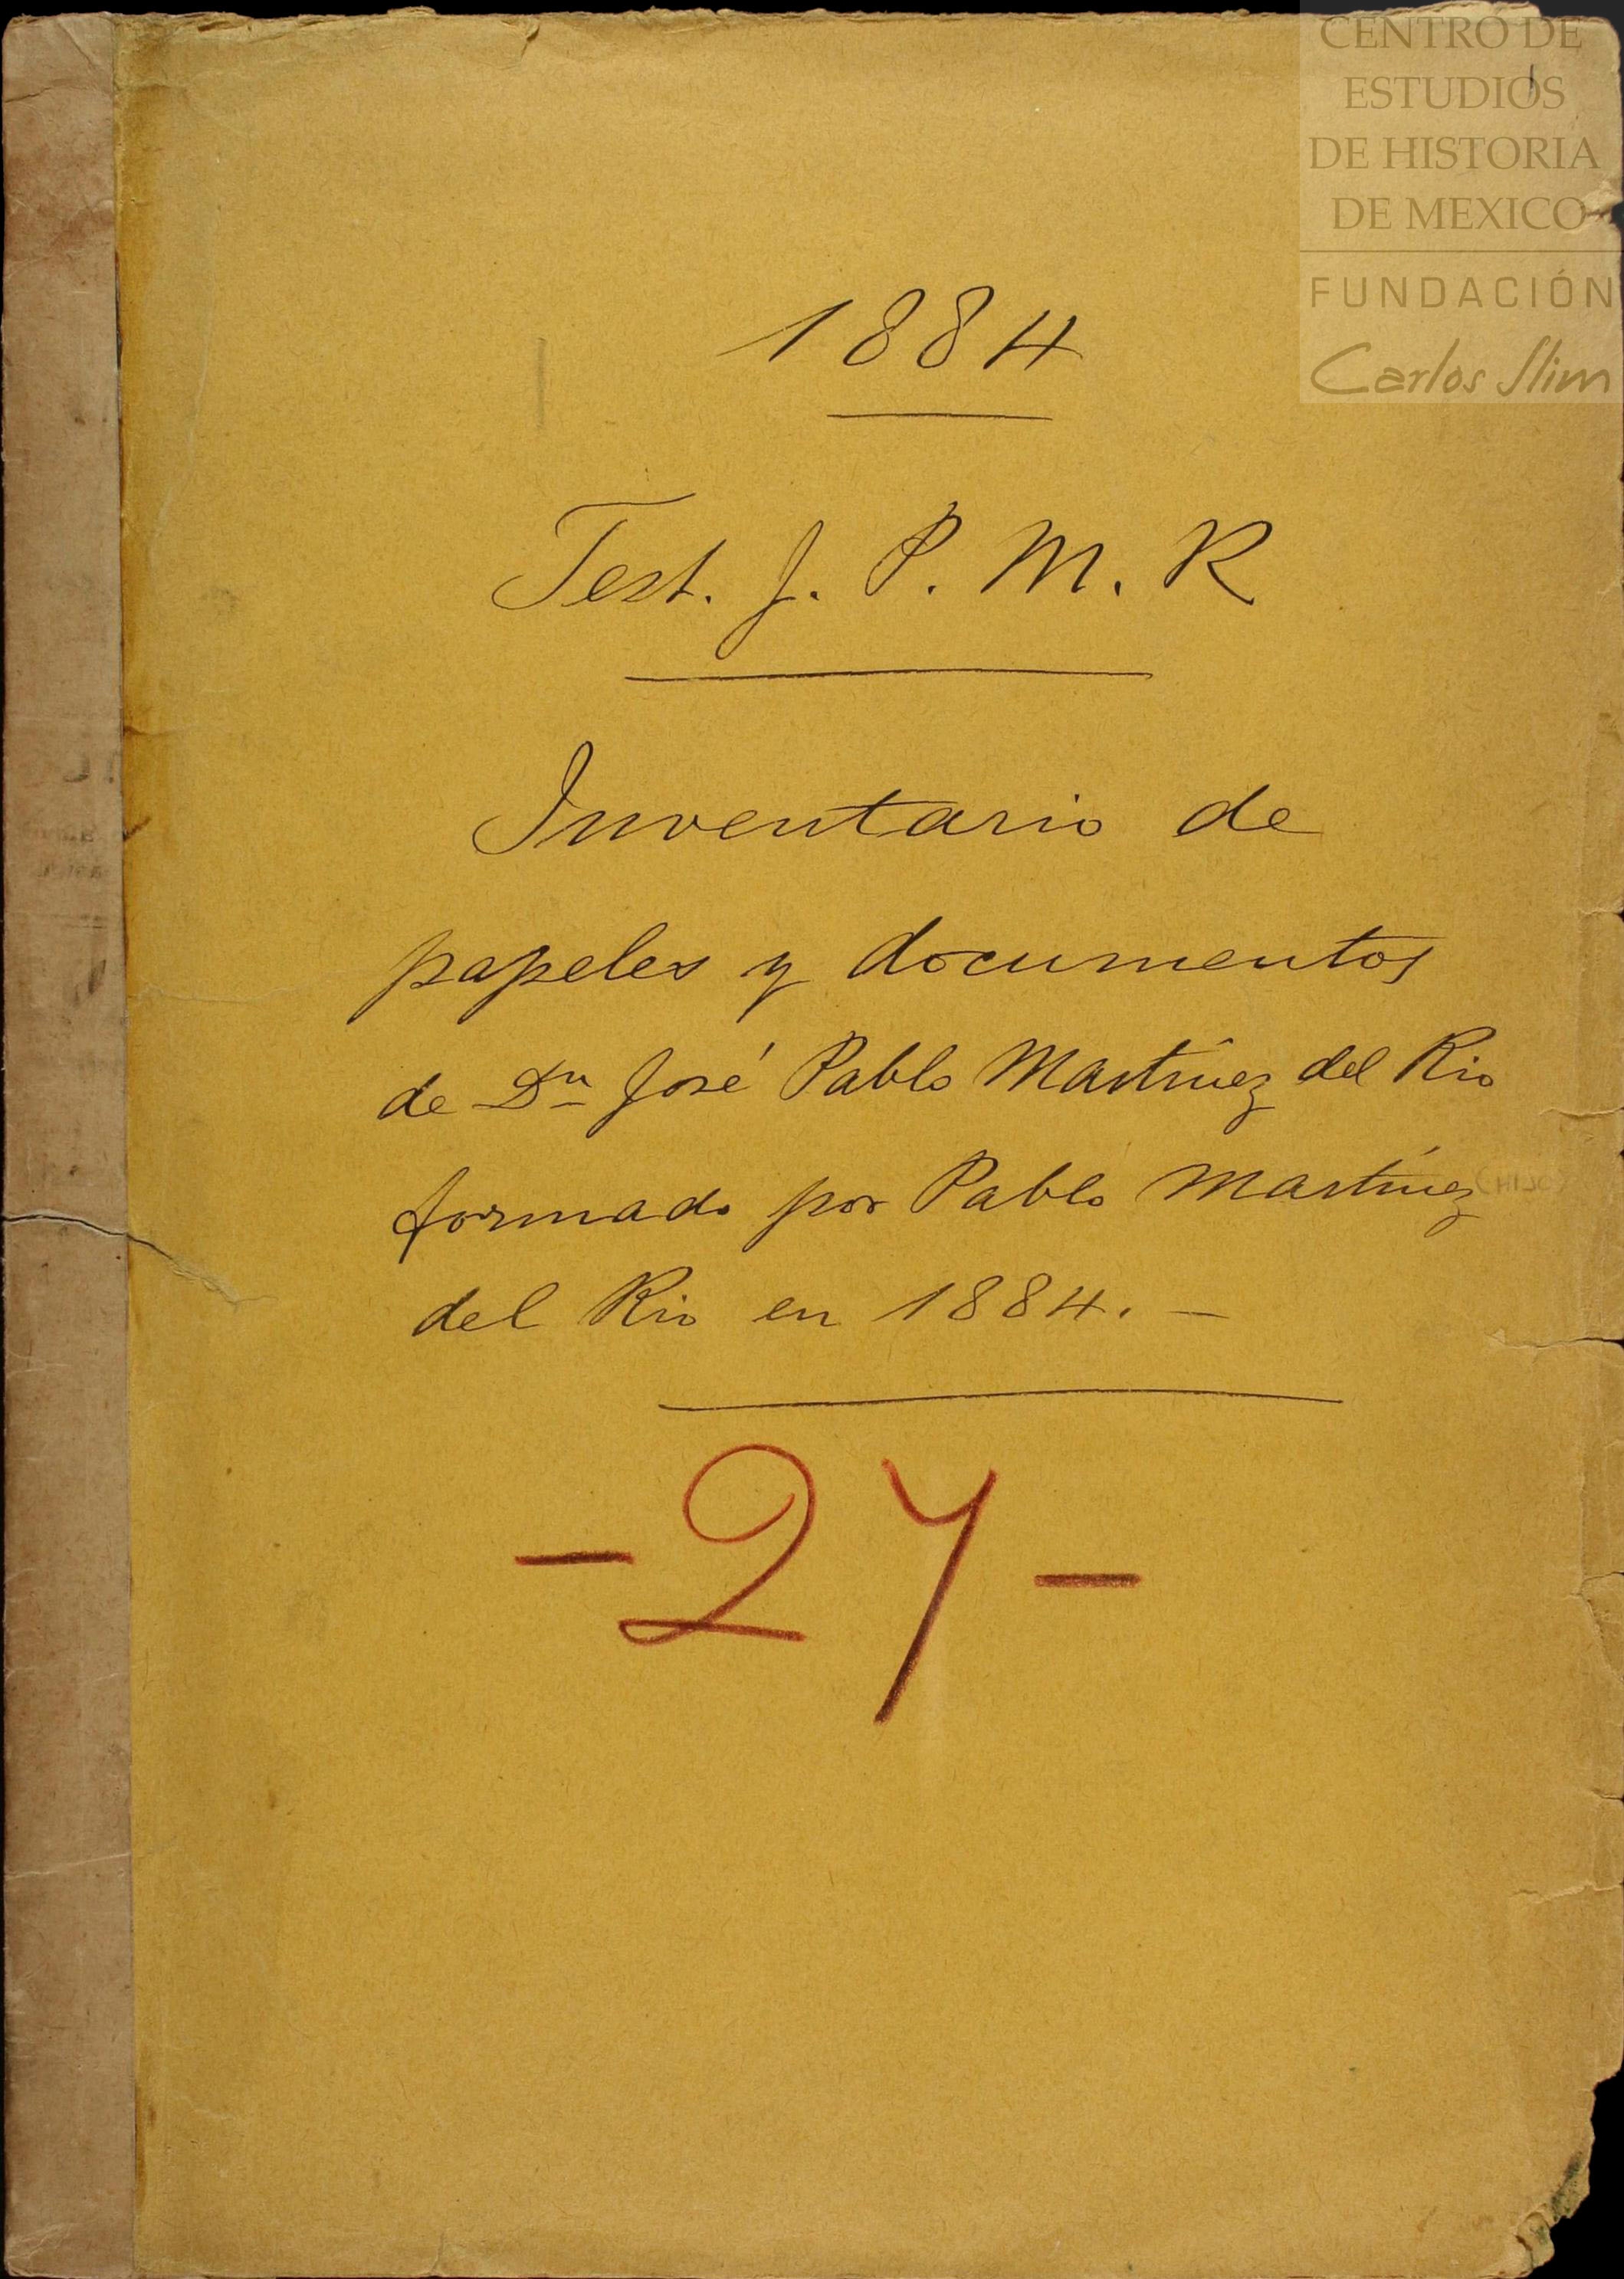 CENTRO DE
ESTUDIOS
DE HISTORIA
DE MEXICO
FUNDACIÓN
Carlos Slim
1884
Test. J. P. M. R
Inventario de
papeles y documentos
de Dn José Pablo Martínez del Rio
formado por Pablo Martínez (HIJO)
del Rio en 1884. —
- 27 -